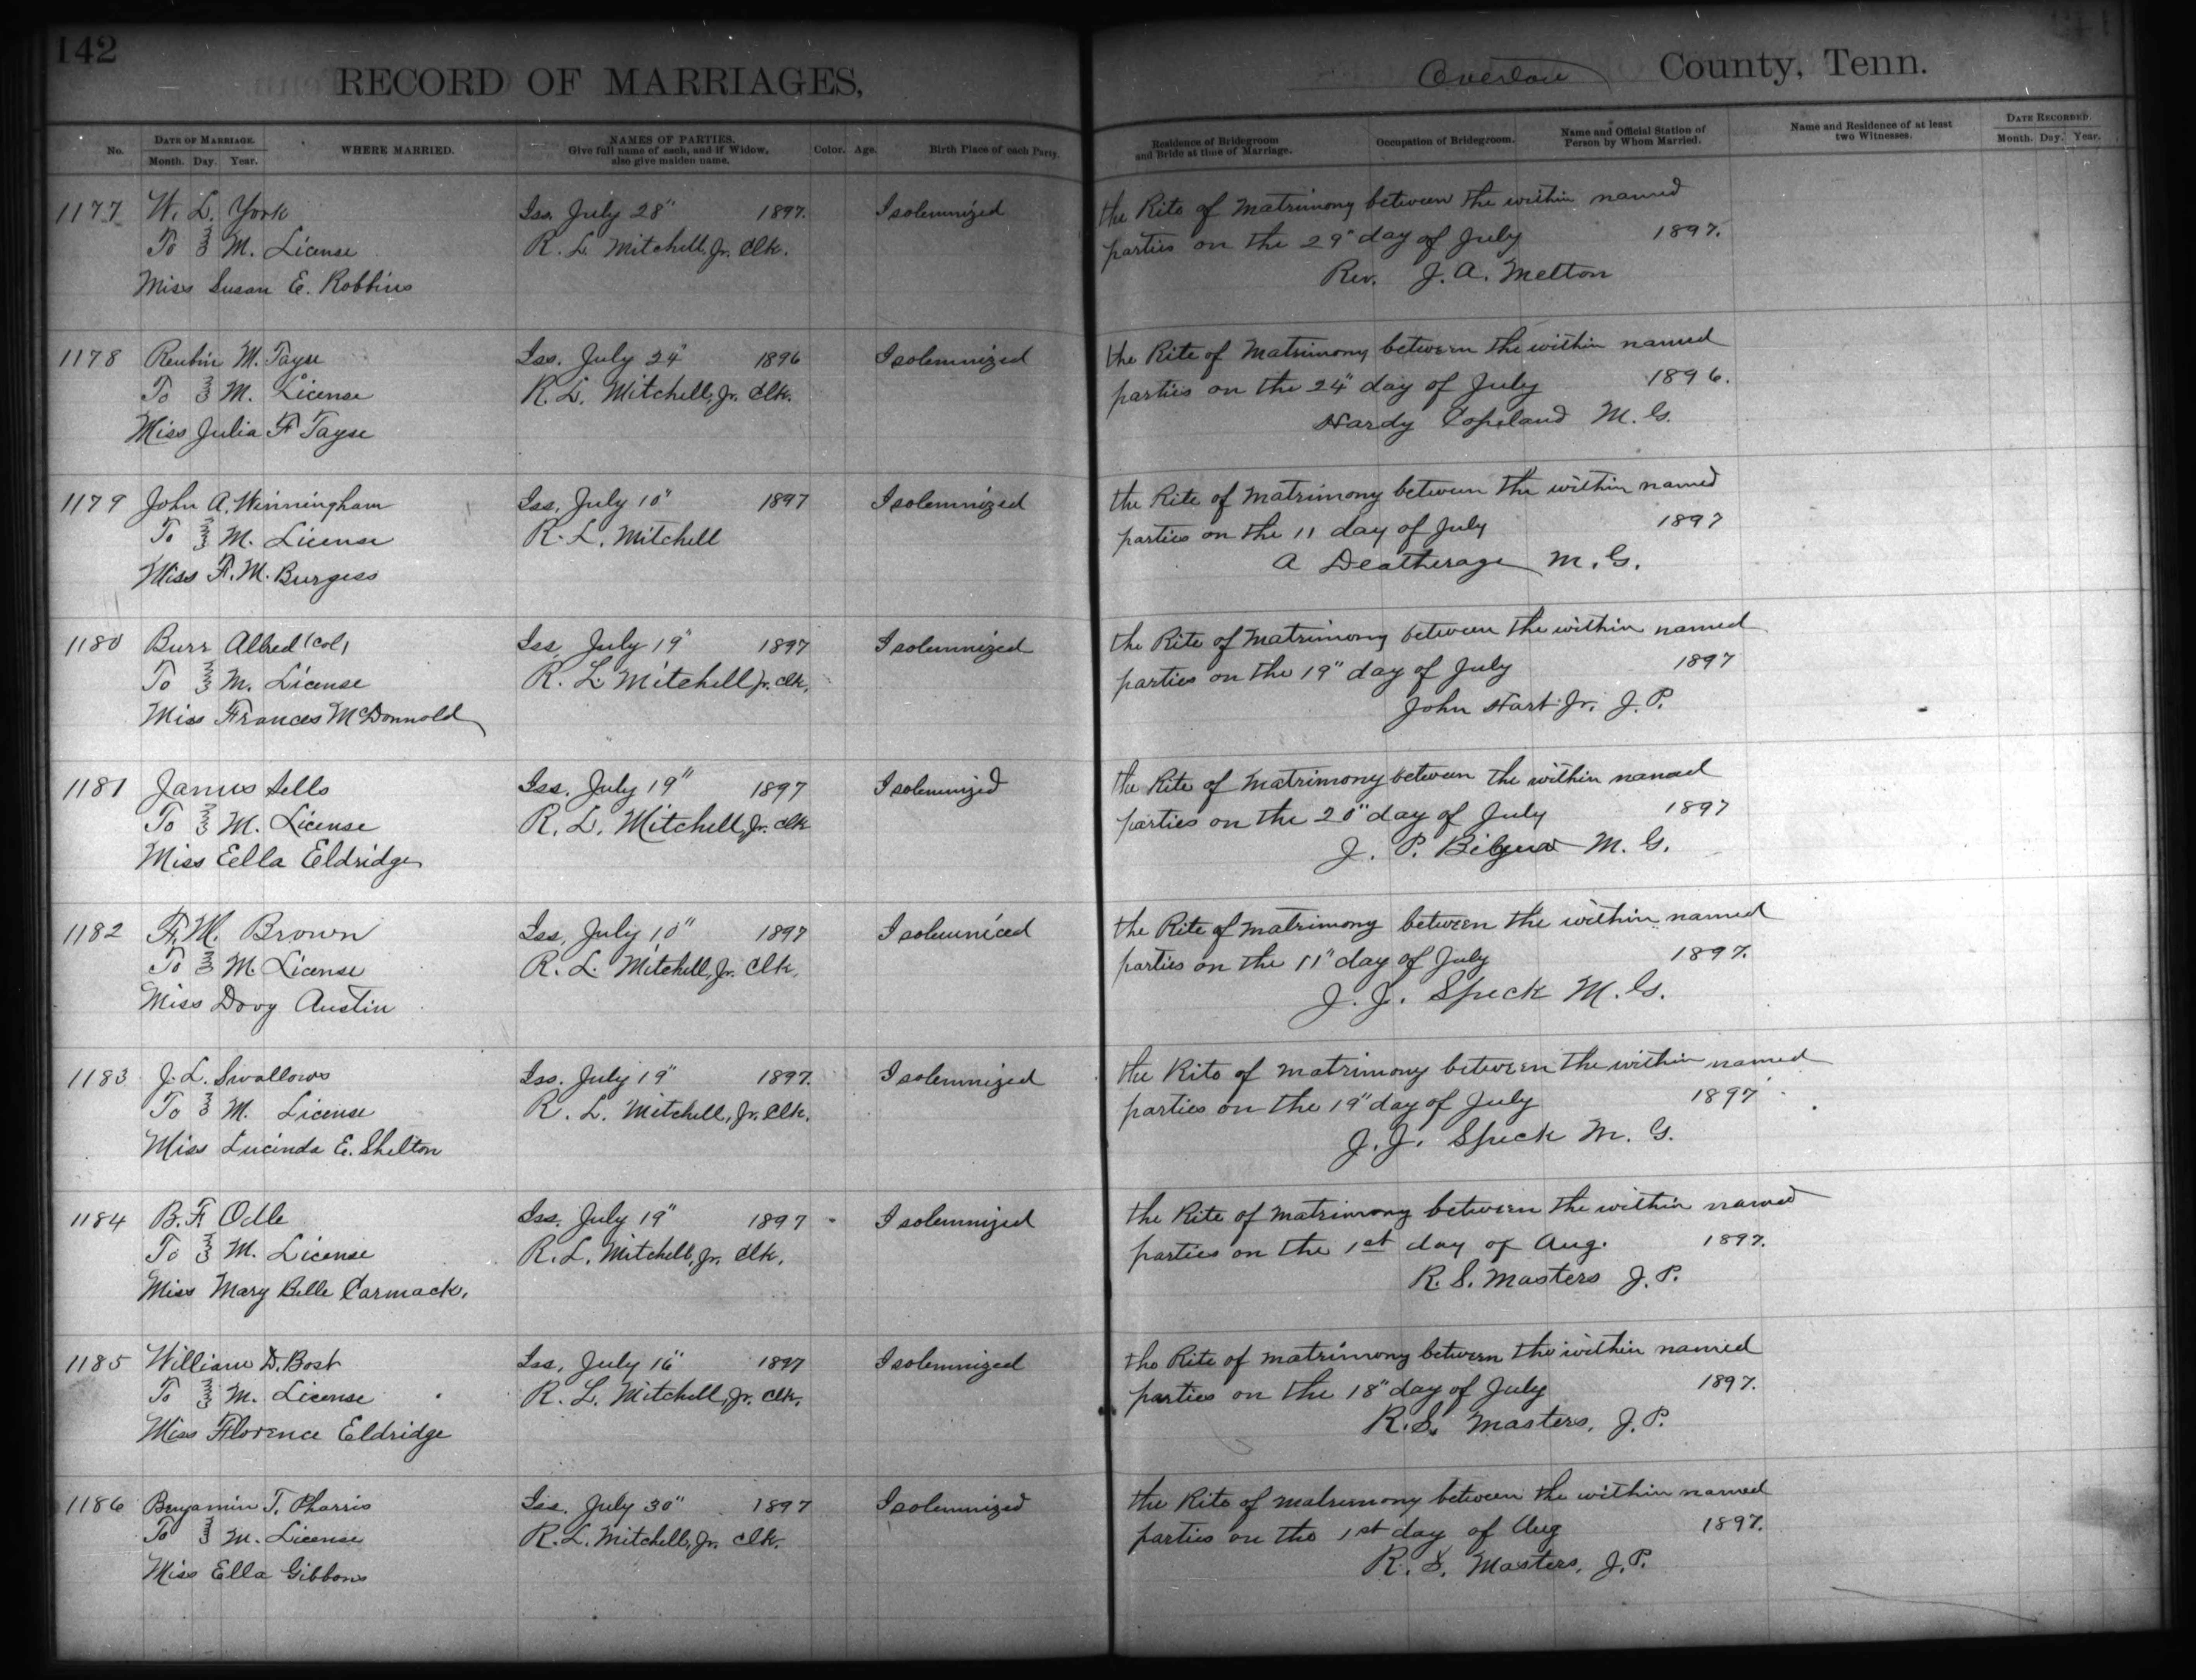 142
RECORD OF MARRIAGES, Overton County, Tenn.
No. DATE OF MARRIAGE. Month. Day. Year. WHERE MARRIED. NAMES OF PARTIES. Give full name of each, and if Widow, also give maiden name. Color. Age. Birth Place of each Party. Residence of Bridegroom and Bride at time of Marriage. Occupation of Bridegroom. Name and Official Station of Person by Whom Married. Name and Residence of at least two Witnesses. DATE RECORDED. Month. Day. Year.
1177 W. L. York Iss. July 28" 1897. I solemnized the Rite of Matrimony between the within named
To M. License R. L. Mitchell, Jr. Clk. parties on the 29" day of July 1897.
Miss Susan E. Robbins Rev. J. A. Melton
1178 Reubin M. Tayse Iss. July 24" 1896 I solemnized the Rite of Matrimony between the within named
To M. License R. L. Mitchell, Jr. Clk. parties on the 24" day of July 1896.
Miss Julia F Tayse Hardy Copeland M. G.
1179 John A. Winningham Iss. July 10" 1897 I solemnized the Rite of Matrimony between the within named
To M. License R. L. Mitchell parties on the 11 day of July 1897
Miss F. M. Burgess A Deatherage M. G.
1180 Burr Allred (Col, Iss. July 19" 1897 I solemnized the Rite of Matrimony between the within named
To M. License R. L. Mitchell Jr. Clk, parties on the 19" day of July 1897
Miss Frances McDonnold John Hart Jr. J. P.
1181 James Sells Iss. July 19" 1897 I solemnized the Rite of Matrimony between the within named
To M. License R. L. Mitchell, Jr. Clk parties on the 20" day of July 1897
Miss Eella Eldridge J. P. M. G.
1182 F. M. Brown Iss. July 10" 1897 I solemniced the Rite of Matrimony between the within named
To M. License R. L. Mitchell, Jr. Clk, parties on the 11" day of July 1897.
Miss Dovy Austin J. J. Speck M. G.
1183 J. L. Swallows Iss. July 19" 1897. I solemnized the Rite of Matrimony between the within named
To M. License R. L. Mitchell, Jr. Clk. parties on the 19" day of July 1897
Miss Lucinda E. Shelton J. J. Speck M. G.
1184 B. F Odle Iss. July 19" 1897 I solemnized the Rite of Matrimony between the within named
To M. License R. L. Mitchell, Jr. Clk, parties on the 1st day of Aug. 1897.
Miss Mary Belle Carmack, R. S. Masters J. P.
1185 William D. Bost Iss. July 16" 1897 I solemnized the Rite of Matrimony between the within named
To M. License R. L. Mitchell, Jr. Clk, parties on the 18" day of July 1897.
Miss Florence Eldridge R. S. Masters, J. P.
1186 Benjamin T. Pharris Iss. July 30" 1897 I solemnized the Rite of Matrimony between the within named
To M. License R. L. Mitchell, Jr. Clk. parties on the 1st day of Aug 1897.
Miss Ella Gibbons R. S. Masters, J. P.